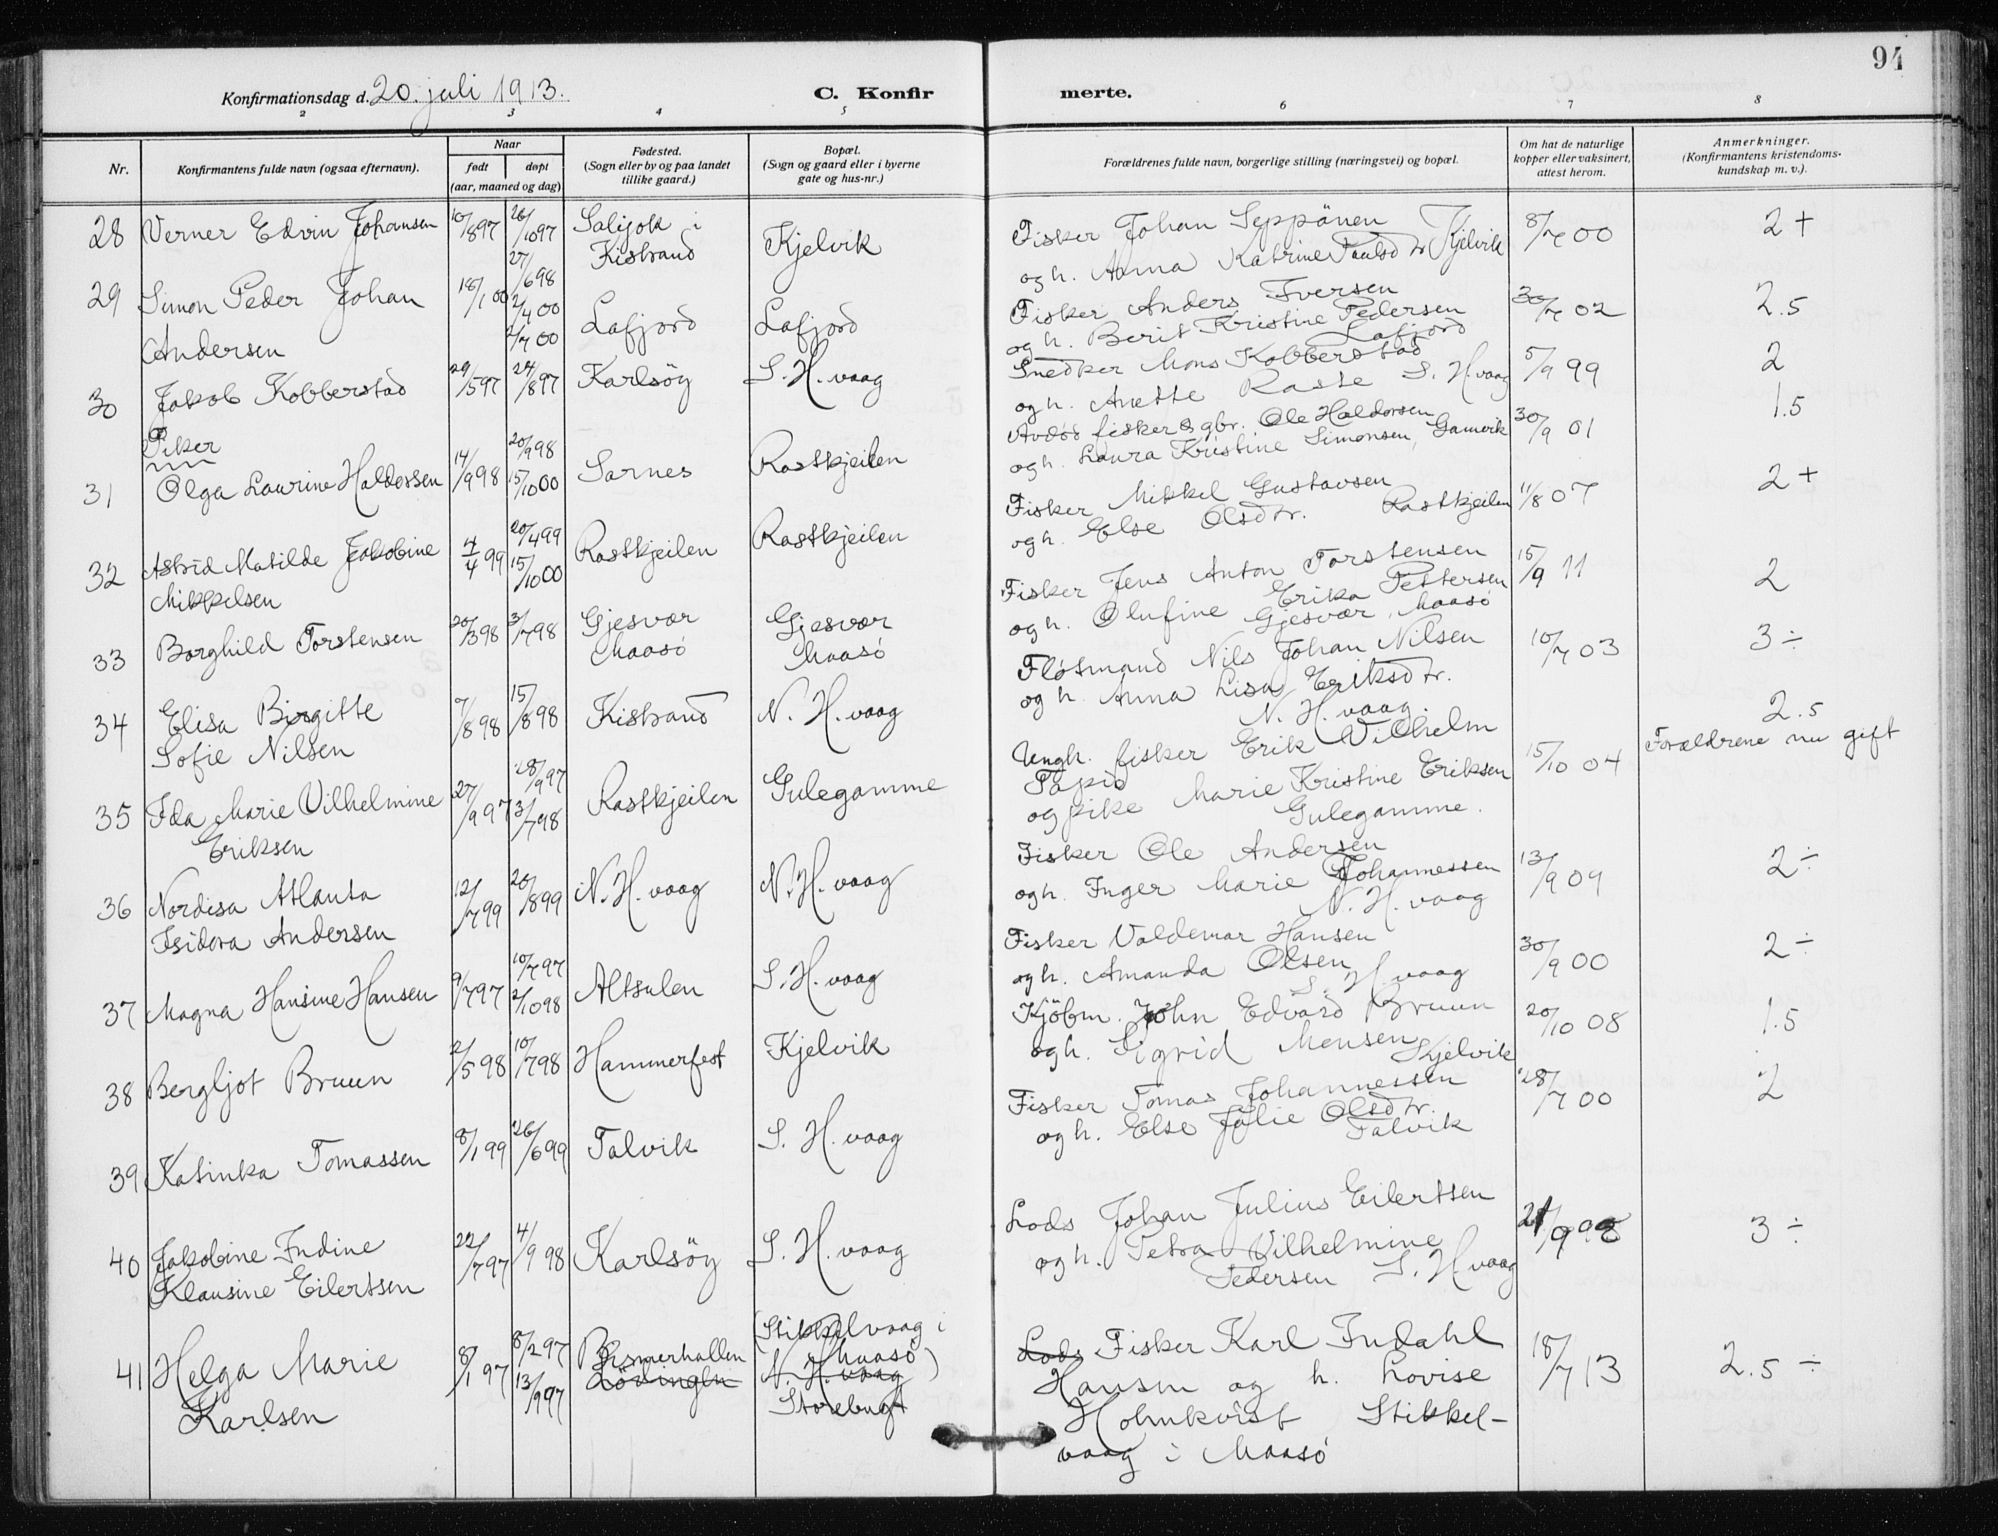 94
Konfirmationsdag d. 20. juli 1913.
C. Konfir
merte.
2 3 4 5 6 7 8
Nr.
Konfirmantens fulde navn (ogsaa efternavn).
Naar
født
døpt
(aar, maaned og dag)
Fødested.
(Sogn eller by og paa landet
tillike gaard.)
Bopæl.
(Sogn og gaard eller i byerne
gate og hus-nr.)
Forældrenes fulde navn, borgerlige stilling (næringsvei) og bopæl.
Om hat de naturlige
kopper eller vaksinert,
attest herom.
Anmerkninger.
(Konfirmantens kristendoms-
kundskap m. v.).
28 Verner Edvin Johansen 10/897 26/1097 27/698 Salijok i Kistrand Kjelvik
Fisker Johan Seppänen
og h. Anna Katrine Paulsdtr Kjelvik 8/7 00 2+
29 Simon Peder Johan 18/1 00 2/4 00 2/7 00 Lafjord Lafjord
Andersen
Fisker Anders Iversen
og h. Berit Kristine Pedersen
Lafjord 30/7 02 2.5
30 Jakob Kobberstad 29/597 24/897 Karlsöy S. H. vaag
Snedker Mons Kobberstad
og h. Anette Raste S. H. vaag 5/9 99 2
Piker
31 Olga Laurine Haldorsen 14/998 20/998 15/1000 Sarnes Rastkjeilen
Avdød fisker & gbr. Ole Haldorsen
og h. Laura Kristine Simonsen, Gamvik 30/9 01 1.5
32 Astrid Matilde Jakobine 4/4 99 20/499 15/1000 Rastkjeilen Rastkjeilen
Mikkelsen
Fisker Mikkel Gustavsen
og h. Else Olsdtr. Rastkjeilen 11/8 07 2+
33 Borghild Torstensen 20/398 3/798 Gjesvær Maasö Gjesvær Maasö
Fisker Jens Anton Torstensen
og h. Olufine Erika Pettersen
Gjesvær, Maasö 15/9 11 2
34 Elisa Birgitte 7/898 15/898 Kistrand N. H. vaag
Sofie Nilsen
Fløtmand Nils Johan Nilsen
og h. Anna Lisa Eriksdtr.
N. H. vaag. 10/7 03 3÷
35 Ida Marie Vilhelmine 27/997 28/997 3/798 Rastkjeilen Gulegamme
Eriksen
Ungk. fisker Erik Vilhelm
og pike Marie Kristine Eriksen
Gulegamme. 15/10 04 2.5
Forældrene nu gift
36 Nordisa Atlanta 12/799 20/899 N. H. vaag N. H. vaag
Isidora Andersen
Fisker Ole Andersen
og h. Inger Marie Johannessen
N. H. vaag 13/9 09 2÷
37 Magna Hansine Hansen 9/797 10/797 2/1098 Altsulen S. H. vaag
Fisker Valdemar Hansen
og h. Amanda Olsen
S. H. vaag 30/9 00 2÷
38 Bergljot Bruun 2/598 10/798 Hammerfest Kjelvik
Kjöbm. John Edvard Bruun
og h. Sigrid Monsen
Kjelvik 20/10 08 1.5
39 Katinka Tomassen 8/199 26/699 Talvik S. H. vaag
Fisker Tomas Johannessen
og h. Else Julie Olsdtr.
Talvik 28/7 00 2
40 Jakobine Indine 22/797 4/9 98 Karlsöy S. H. vaag
Klausine Eilertsen
Lods Johan Julius Eilertsen
og h. Petra Vilhelmine
Pedersen S. H. vaag 21/998 3÷
41 Helga Marie 8/197 8/297 13/997 Bismerhallen Lödingen (Stikkelvaag i
Maasö)
N. H. vaag
Storebugt
Karlsen
Lods Fisker Karl Indahl
Hansen og h. Lovise
Holmkvist Stikkel-
vaag i Maasö 18/7 13 2.5÷